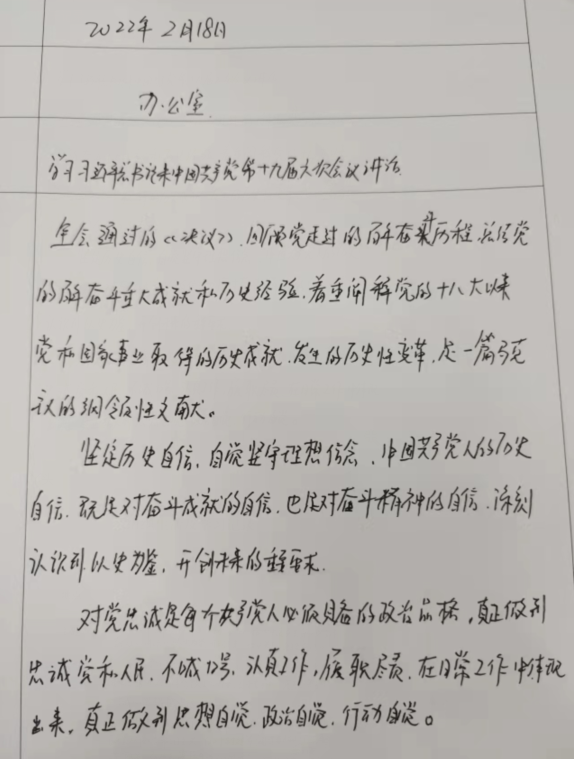 2022年2月18日
办公室
学习习近平总书记在中国共产党第十九届六次会议讲话
全会通过的《决议》,回顾党走过的百年奋斗历程,总结党
的百年奋斗重大成就和历史经验,着重阐释党的十八大以来
党和国家事业取得的历史成就,发生的历史性变革,是一篇
议的纲领性文献。
坚定历史自信,自觉坚守理想信念,中国共产党人的历史
自信,既是对奋斗成就的自信,也是对奋斗精神的自信,深刻
认识到以史为鉴,开创未来的重要求.
对党忠诚是每个共产党人必须具备的政治品格,真正做到
忠诚党和人民,不喊口号,认真工作,履职尽责,在日常工作中体现
出来,真正做到思想自觉、政治自觉、行动自觉。